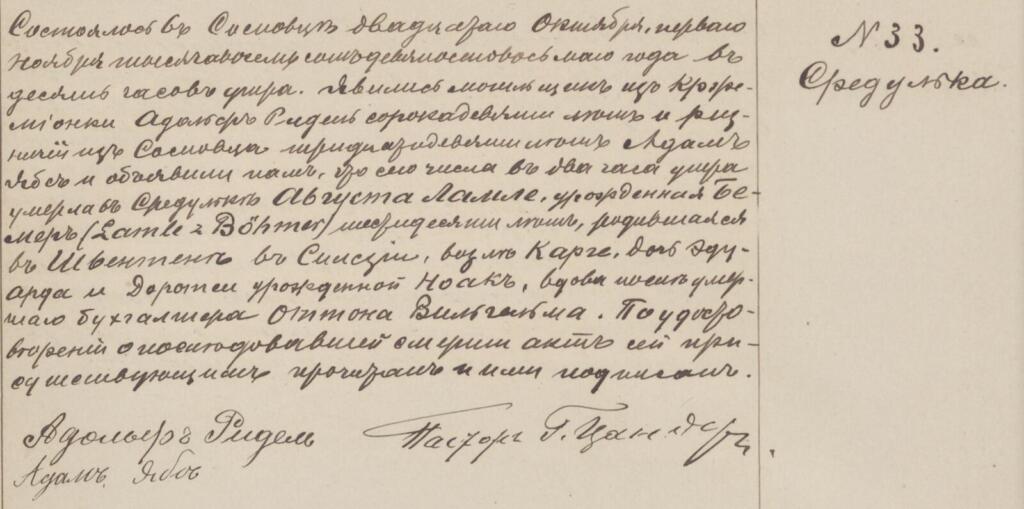 Состоялось въ Сосновцѣ двадцатаго Октября, перваго
Ноября тысяча восемьсотъ девяносто восьмаго года въ
десять часовъ утра. Явились могильщикъ изъ
Адольфъ Ридель сорока девяти лѣтъ и рѣз-
ничій изъ Сосновца тридцати девяти лѣтъ Адамъ
Ябсъ и объявили намъ, что сего числа въ два часа утра
умерла въ Средулькѣ Августа Ламле, урожденная Бе-
меръ (Lamle z Böhmer) шестидесяти лѣтъ, родившаяся
въ Швентенъ въ Силезіи, возлѣ Карге, дочь Эду-
арда и Доротеи урожденной Ноакъ, вдова послѣ умер-
шаго бухгалтера Оттона Вильгельма. По удосто-
вѣреніи о послѣдовавшей смерти актъ сей при-
сутствующимъ прочитанъ и ими подписанъ.
Адольфъ Ридель
Пасторъ Г. Цандеръ.
Адамъ Ябсъ
N 33.
Средулька.